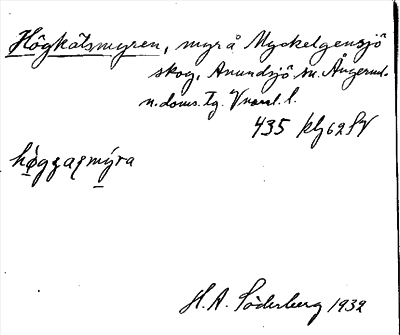 Högkälsmyren, myr å Myckelgensjö
skog, Anundsjö sn. Ångerml.
n. doms. Tg. Vnorrl. l.
435 klj 62 SV
høggaqmýra
H. A. Söderberg 1932